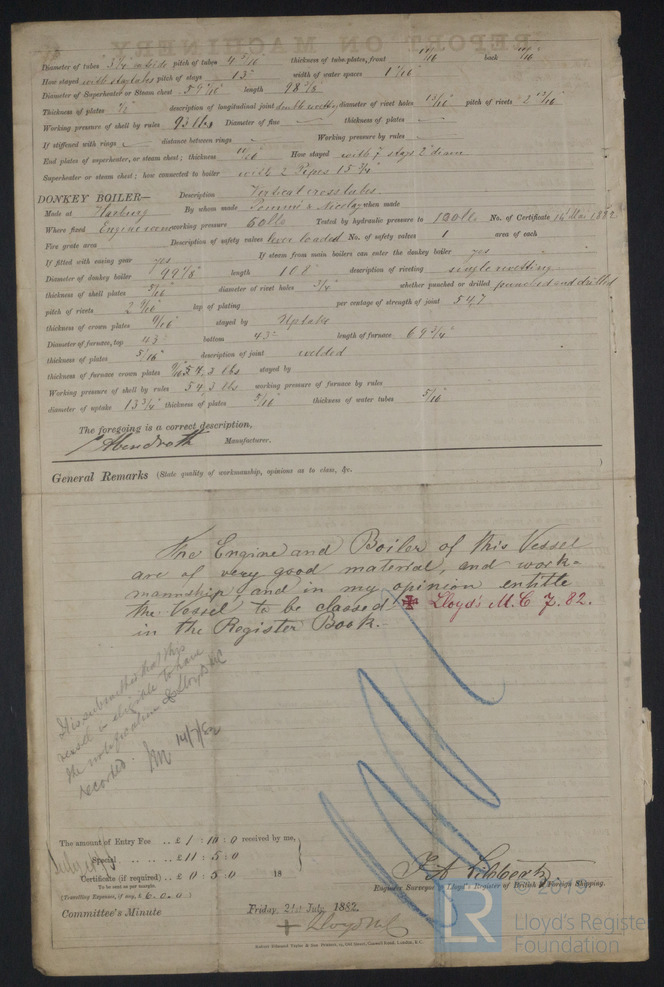 Diameter of tubes 3¼ outside pitch of tubes 4 9/16 thickness of tube plates, front 11/16 back 11/16
How stayed with stay tubes pitch of stays 13" width of water spaces 1 7/16"
Diameter of Superheater or Steam chest length 98 7/8
Thickness of plates ½ description of longitudinal joint double rivetting diameter of rivet holes 13/16" pitch of rivets 2 13/16
Working pressure of shell by rules 93 lbs Diameter of flue — thickness of plates —
If stiffened with rings — distance between rings — Working pressure by rules —
End plates of superheater, or steam chest; thickness 11/16 How stayed with 7 stays 2" diam
Superheater or steam chest; how connected to boiler with 2 Pipes 15 ¾"
DONKEY BOILER— Description Vertical cross tubes.
Made at Harburg By whom made when made
Where fixed Engine room working pressure 60 lbs Tested by hydraulic pressure to 120 lbs No. of Certificate 14 Mar 1882
Fire grate area Description of safety valves lever loaded No. of safety valves 1 area of each
If fitted with easing gear yes If steam from main boilers can enter the donkey boiler yes
Diameter of donkey boiler length 108" description of riveting single rivetting
thickness of shell plates 5/16 diameter of rivet holes ¾" whether punched or drilled punched and drilled
pitch of rivets lap of plating per centage of strength of joint 54,7
thickness of crown plates 9/16 stayed by Uptake
Diameter of furnace, top 43" bottom 43" length of furnace 69 ¾"
thickness of plates 5/16" description of joint welded
thickness of furnace crown plates 54,3 lbs stayed by
Working pressure of shell by rules 54,3 lbs working pressure of furnace by rules
diameter of uptake 13 ¾" thickness of plates 5/16" thickness of water tubes 5/16
The foregoing is a correct description,
Manufacturer.
General Remarks (State quality of workmanship, opinions as to class, &c.
The Engine and Boiler of this Vessel
are of very good material, and work-
mannship and in my opinion entitle
the Vessel to be classed ✠ Lloyd's M.C. 7. 82.
in the Register Book.
It is submitted that this
vessel is eligible to have
the notification ✠ Lloyds MC
recorded. 14/7/82
The amount of Entry Fee .. £ 1 : 10 : 0 received by me,
Special .. .. £ 11 : 5 : 0
Certificate (if required) .. £ 0 : 5 : 0 18
To be sent as per margin.
(Travelling Expenses, if any, £ 6.0.0)
Engineer Surveyor to Lloyd's Register of British & Foreign Shipping.
Committee's Minute Friday, 21st July 1882.
+ Lloyds MC
LR © 2019
Lloyd's Register
Foundation